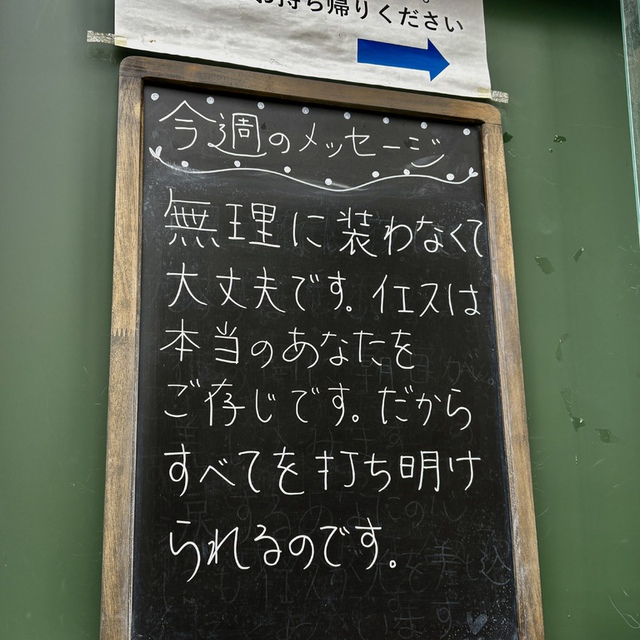 お持ち帰りください
今週のメッセージ
無理に装わなくて
大丈夫です。イエスは
本当のあなたを
ご存じです。だから
すべてを打ち明け
られるのです。